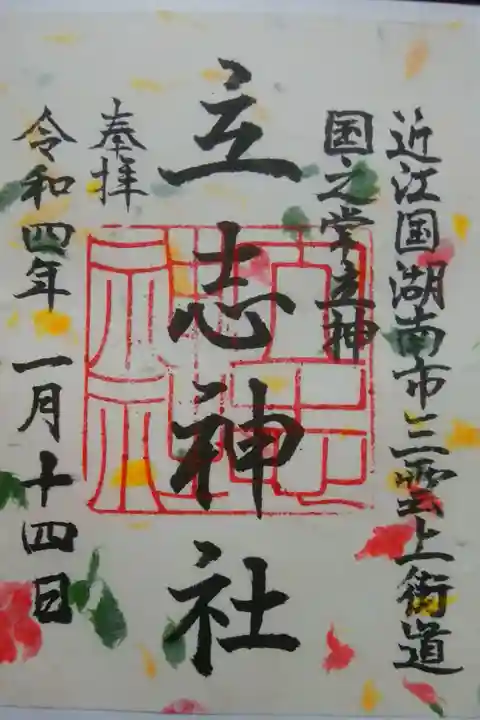 近江国湖南市三雲上街道
国之常立神
立志神社
奉拝
令和四年 一月十四日